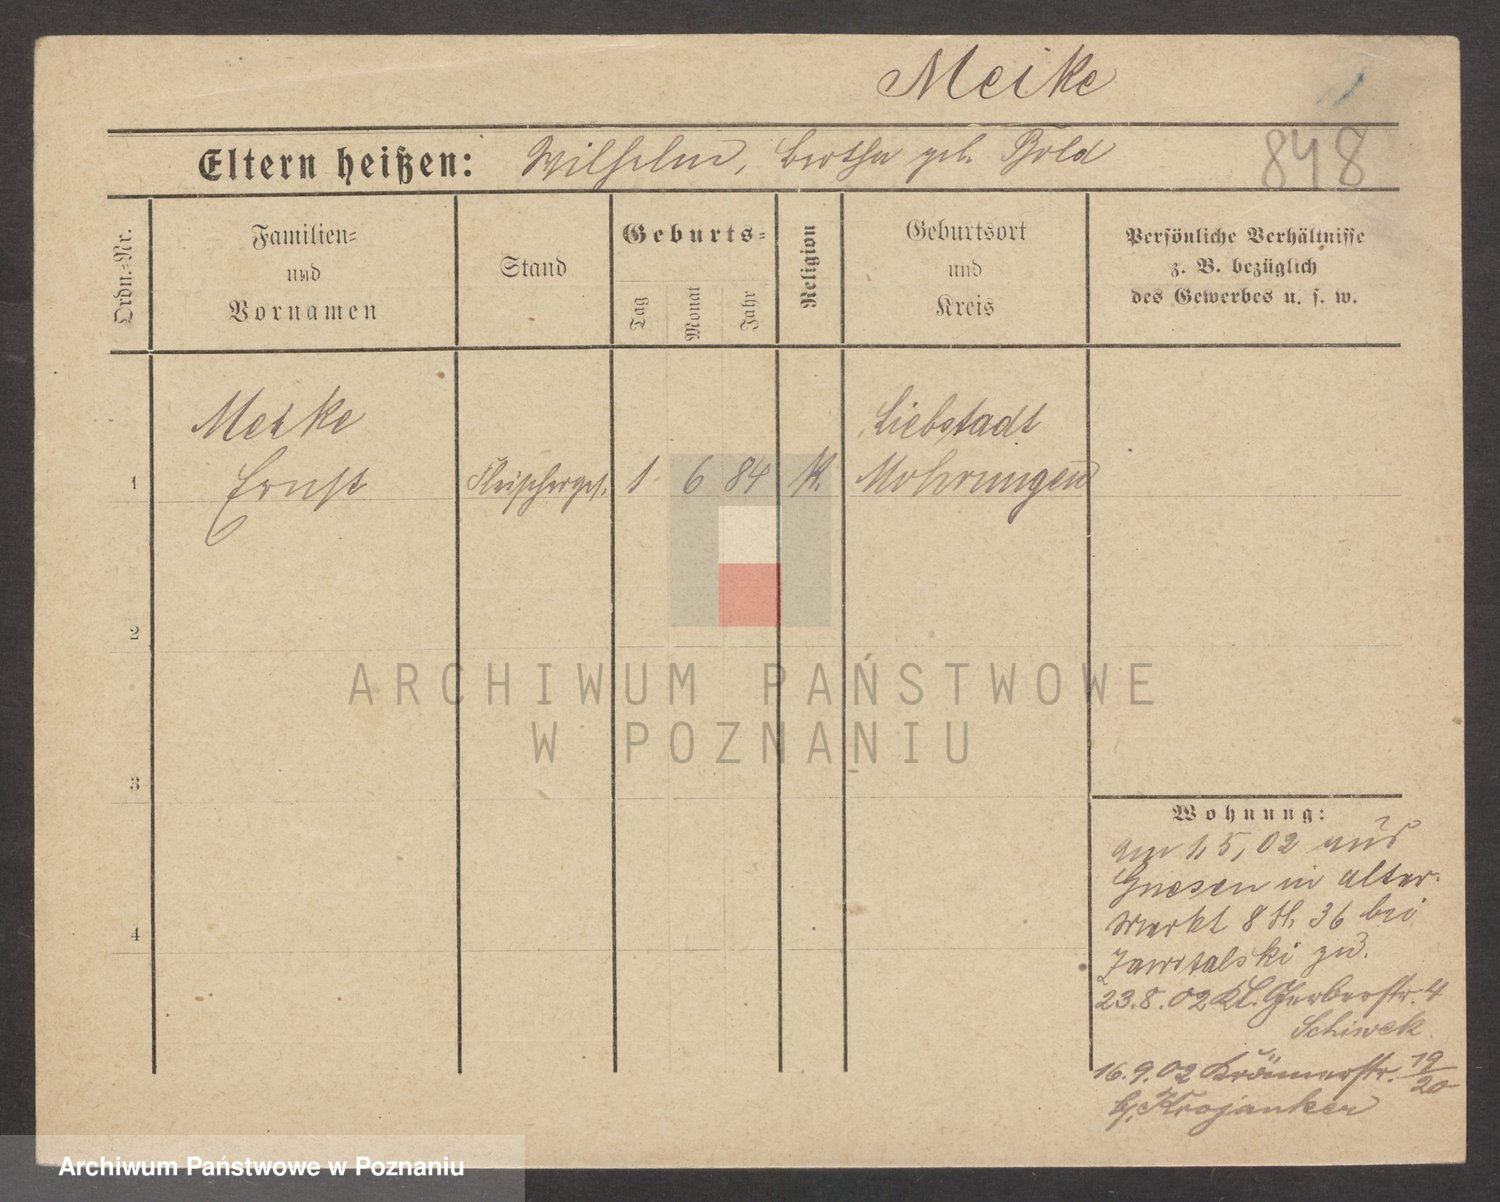 Meike
Eltern heißen: Wilhelm, Bertha geb. Bold
848
Ordn.-Nr.
Familien-
und
Vornamen
Stand
Geburts-
Tag
Monat
Jahr
Religion
Geburtsort
und
Kreis
Persönliche Verhältnisse
z. B. bezüglich
des Gewerbes u. s. w.
Meike
1 Ernst Fleischerges. 1 6 84 K.
Liebstadt
Mohrungen
2
3
4
ARCHIWUM PAŃSTWOWE
W POZNANIU
Wohnung:
am 1,5,02 aus
Gnesen in alter-
Markt 8 H. 36 bei
Zawitalski zu.
23.8.02 Kl. Gerberstr. 4
Schiwek
16.9.02 Krämerstr. 19/20
bj. Krojanker
Archiwum Państwowe w Poznaniu